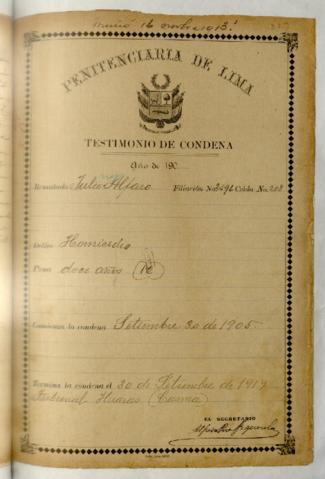 Murió 16 octubre 1913
PENITENCIARIA DE LIMA
TESTIMONIO DE CONDENA
Año de 190
Rematado Julio Alfaro Filiación No. 3496 Celda No. 208
Delito Homicidio
Pena doce años (12)
Comienza la condena Setiembre 30 de 1905
Termina la condena el 30 de Setiembre de 1917
Tribunal Huaras (Casma)
EL SECRETARIO